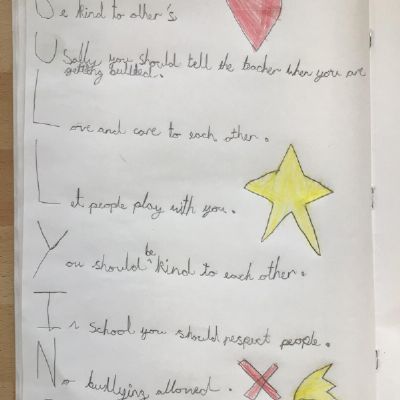 Be kind to other's
Usally you should tell the teacher when you are
getting bullied.
Love and care to each other.
Let people play with you.
You should be kind to each other.
In school you should respect people.
No bullying allowed.